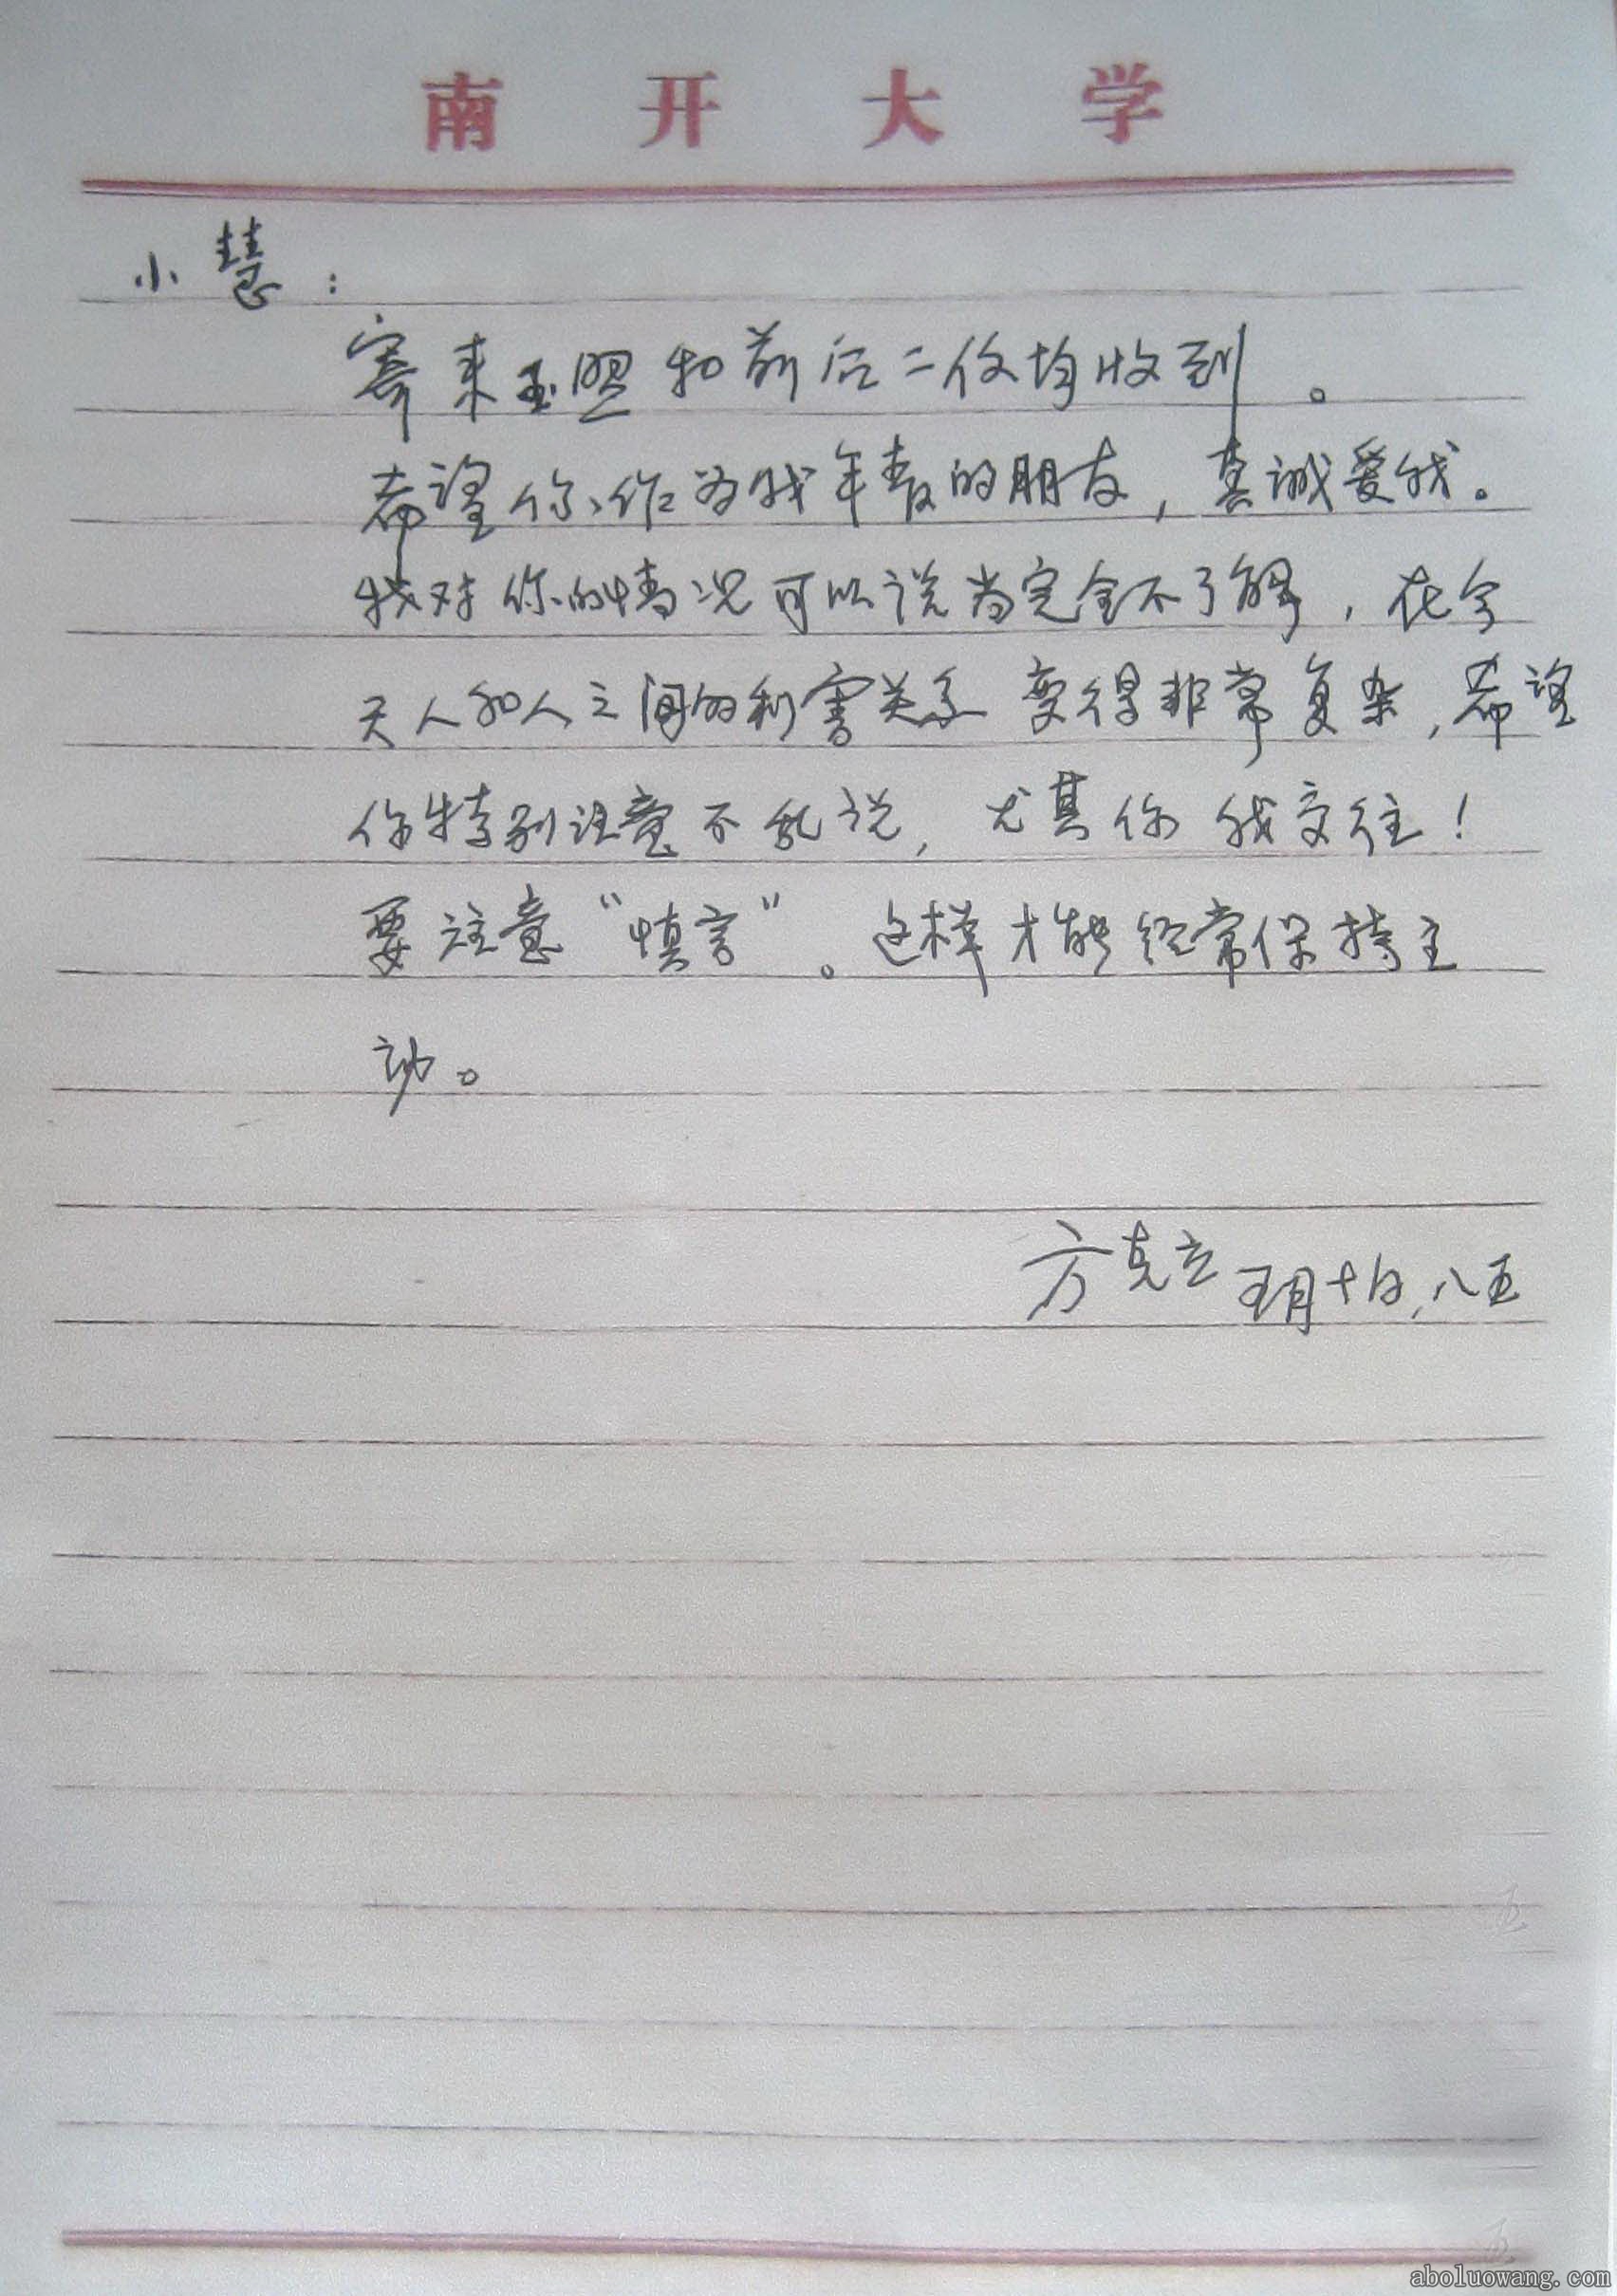 南开大学
小慧：
寄来玉照和前后二份均收到。
希望你作为我年青的朋友，真诚爱我。
我对你的情况可以说尚完全不了解，在今
天人和人之间的利害关系变得非常复杂，希望
你特别注意不乱说，尤其你我交往！
要注意“慎言”。这样才能经常保持主
动。
方克立 五月十日，八五
aboluowang.com